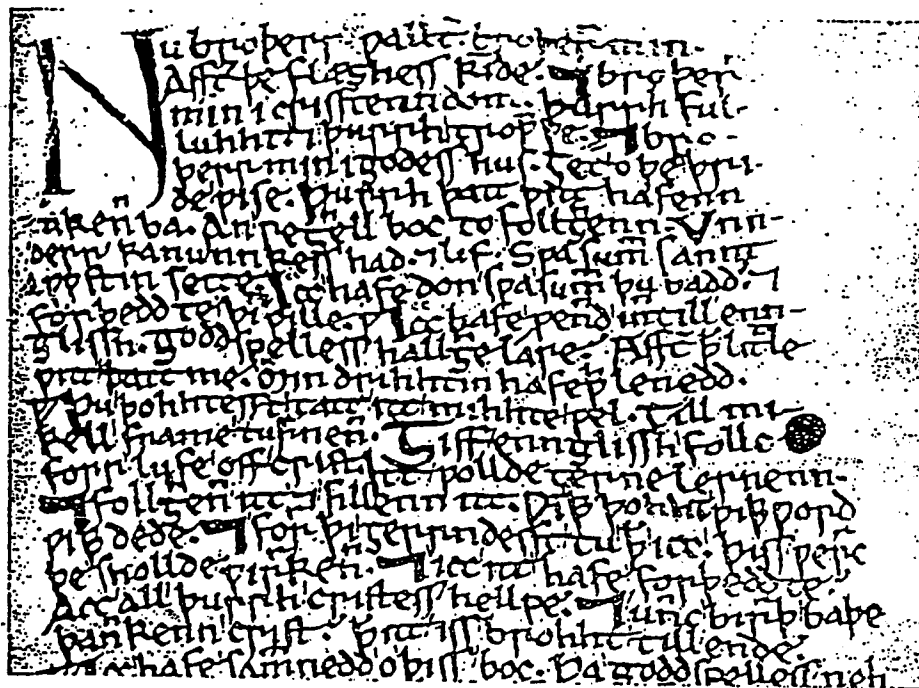 Nu broþerr ƿallt̄. broþerr min.
Afft̄ þe flæshess kīde. ⁊ broþerr
min i crisstenndom. þurrh ful-
luhht. ⁊ þurrh troƿƿþe. ⁊ bro-
þerr min i godess hus. ȝet o þe þri-
de ƿise. þurrh þatt ƿitt hafenn
takenn ba. An reȝhellboc to follȝhenn. Unn-
derr kanunnkess had. ⁊ lif. Sƿa sum̄ sannt
aƿƿstin sette. Icc hafe don sƿa sum̄ þu badd. ⁊
forþedd te þin ƿille. Icc hafe ƿennd inntill enn-
glissh. goddspelless hallȝhe lare. Afft̄ þ̄ litle
ƿitt þatt me. min drihhtin hafeþþ lenedd.
Þu þohhtesst tatt itt mihhte ƿel. till mi-
kell frame turrnenn. Ȝiff ennglissh follc
forr lufe off crist. itt ƿollde ȝerne lernenn.
⁊ follȝhenn itt ⁊ fillenn itt. ƿiþþ þohht ƿiþþ ƿord
ƿiþþ dede. ⁊ forrþi ȝerrndesst tu þ̄ icc. þiss ƿerrc
þe shollde ƿirrkenn. ⁊ icc itt hafe forþedd te
Acc all þurrh cristess hellpe. ⁊ unnc birrþ baþe
þannkenn crist. þ̄ itt iss brohht till ende.
Icc hafe sammnedd o þiss boc. þa goddspelless neh